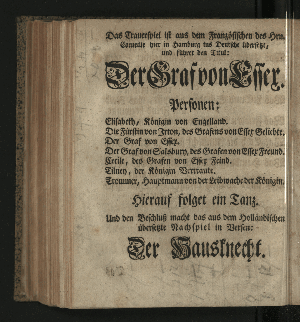 Das Trauerspiel ist aus dem Französischen des Hrn.
Corneille hier in Hamburg ins Deutsche übersetzt,
und führet den Titul:
Der Graf von Essex.
Personen:
Elisabeth, Königin von Engelland.
Die Fürstin von Irton, des Grafens von Essex Geliebte.
Der Graf von Essex.
Der Graf von Salsbury, des Grafen von Essex Freund.
Cecile, des Grafen von Essex Feind.
Tilney, der Königin Vertraute.
Crommer, Hauptmann von der Leibwache der Königin.
Hierauf folget ein Tanz.
Und den Beschluß macht das aus dem Holländischen
übersetzte Nachspiel in Versen:
Der Hausknecht.